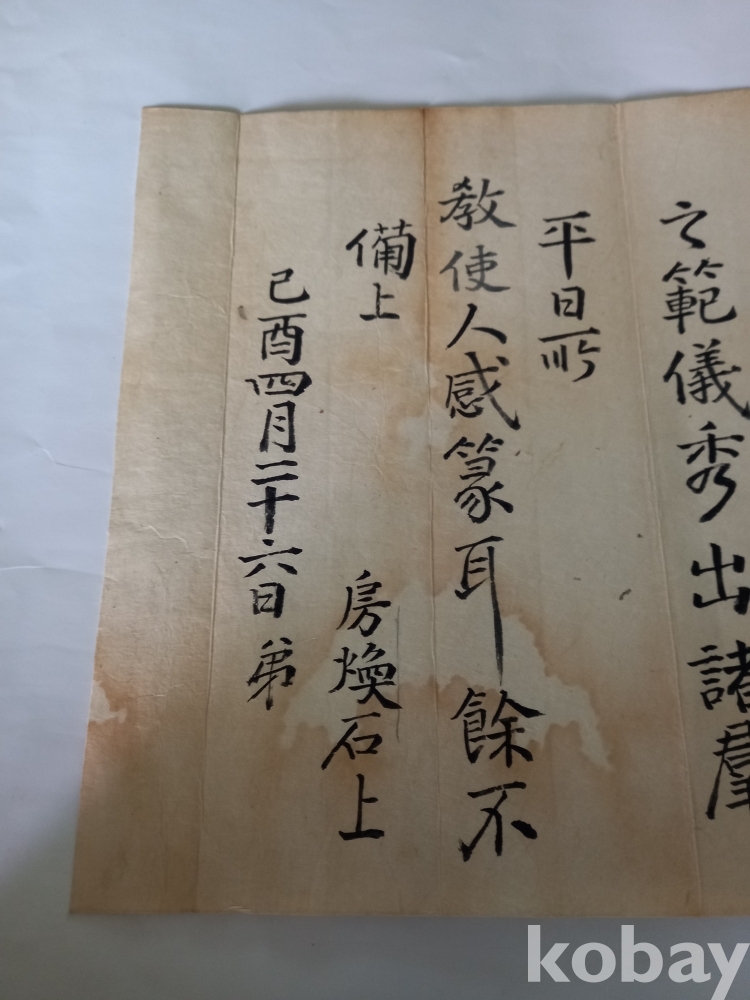 之範儀秀出諸羣
平日所
教使人感篆耳餘不
備上
己酉四月二十六日弟
房煥石上
kobay